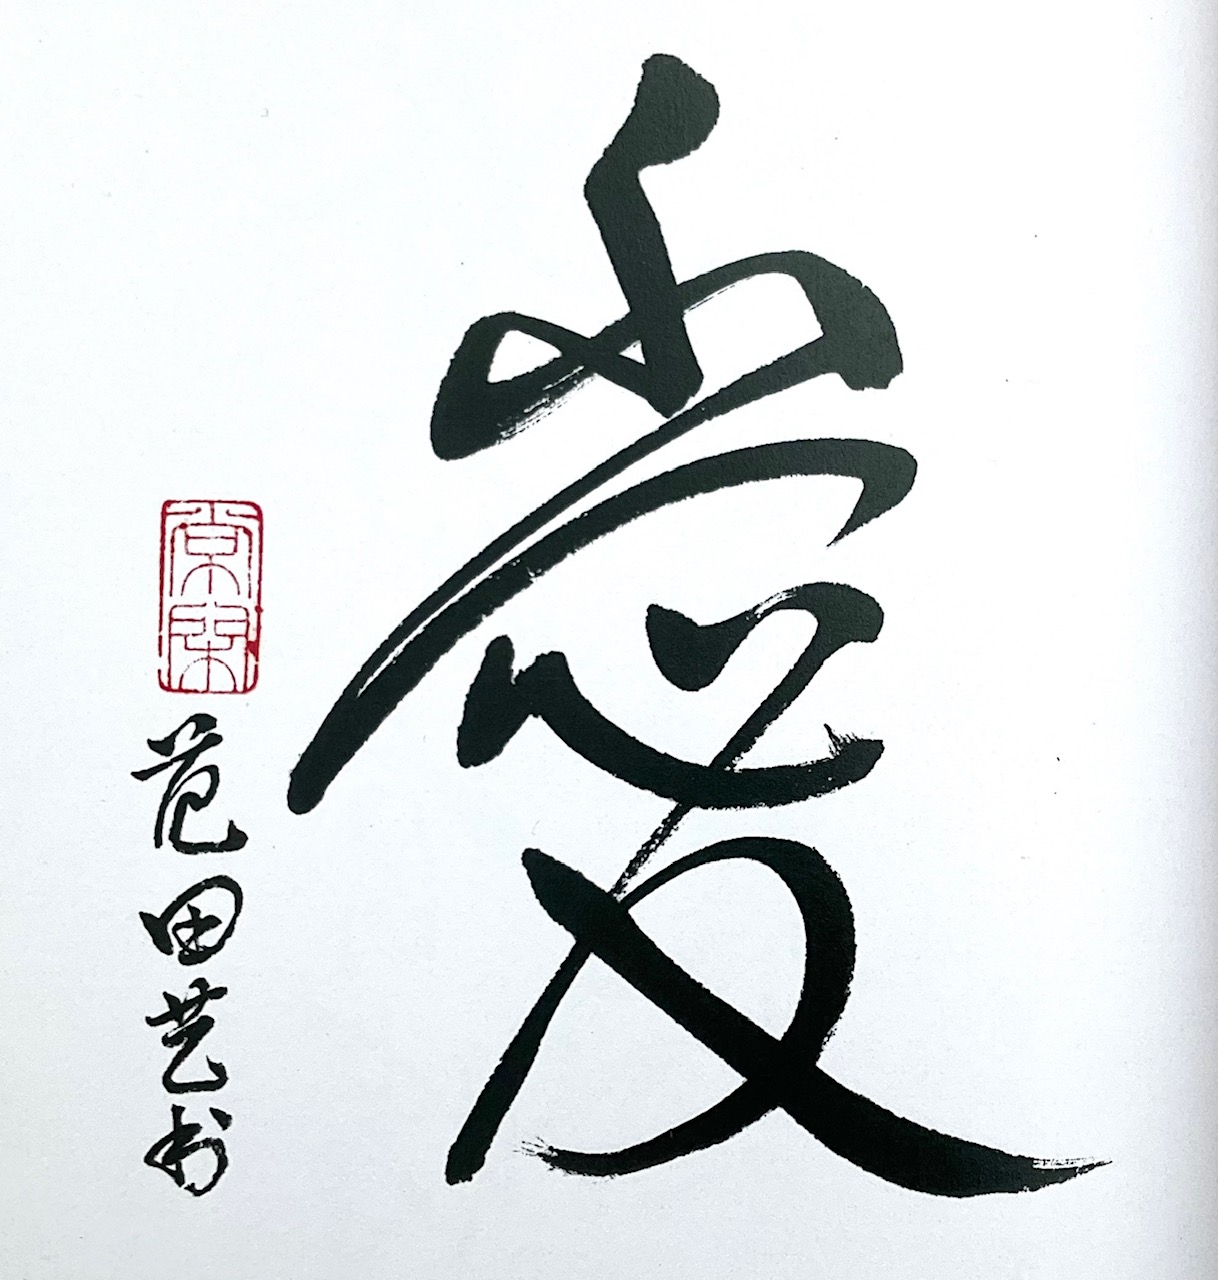 愛
范田艺书